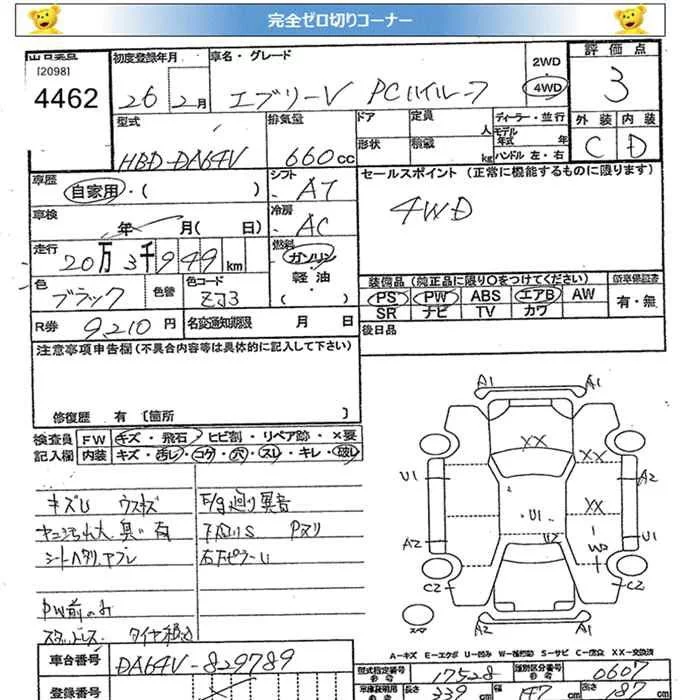 完全ゼロ切りコーナー
出品票
[2098]
4462
初度登録年月
26年2月
車名・グレード
エブリーV PCハイルーフ
2WD
4WD
評価点
3
外装 内装
C D
型式
HBD-DA64V
排気量
660cc
ドア
形状
定員 人
積載 kg
ディーラー・並行
モデル年式 年
ハンドル 左・右
車歴
自家用・( )
シフト
AT
セールスポイント(正常に機能するものに限ります)
4WD
車検
年 月( 日)
冷房
AC
走行
20万3千949km
燃料
ガソリン
軽油
( )
色
ブラック
色替
色コード
ZJ3
装備品(純正品に限り〇をつけてください)
PS PW ABS エアB AW
SR ナビ TV カワ
新車保証書
有・無
R券 9210円
名変通知期限 月 日
後日品
注意事項申告欄(不具合内容等は具体的に記入して下さい)
修復歴 有 [箇所 ]
検査員記入欄
FW キズ・飛石・ヒビ割・リペア跡・×要
内装 キズ・汚レ・コゲ・穴・スレ・キレ・破レ
キズU ウスキズ
ヤニ汚れ大 臭い有
シートヘタリ、ヤブレ
PW前のみ
スタッドレス
F/g廻り異音
下廻りS Pヌリ
右
A1 A1
XX
XX
U1 A2
XX
U1
W
A2 U1
C2 C2
A2 A1
スペア
A-キズ E-エクボ U-凹み W-補修跡 S-サビ C-腐食 XX-交換済
車台番号
DA64V-829789
登録番号
型式指定番号 17528
類別区分番号 0607
長さ 339 cm
幅 147 cm
高さ 187 cm